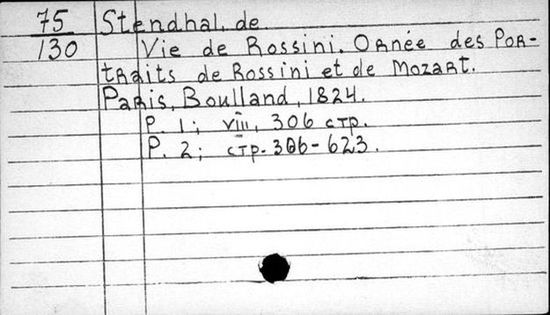 75 Stendhal, de
130 Vie de Rossini. Ornée des Por-
traits de Rossini et de Mozart.
Paris, Boulland, 1824.
P. 1; viii, 306 стр.
P. 2; стр. 306-623.